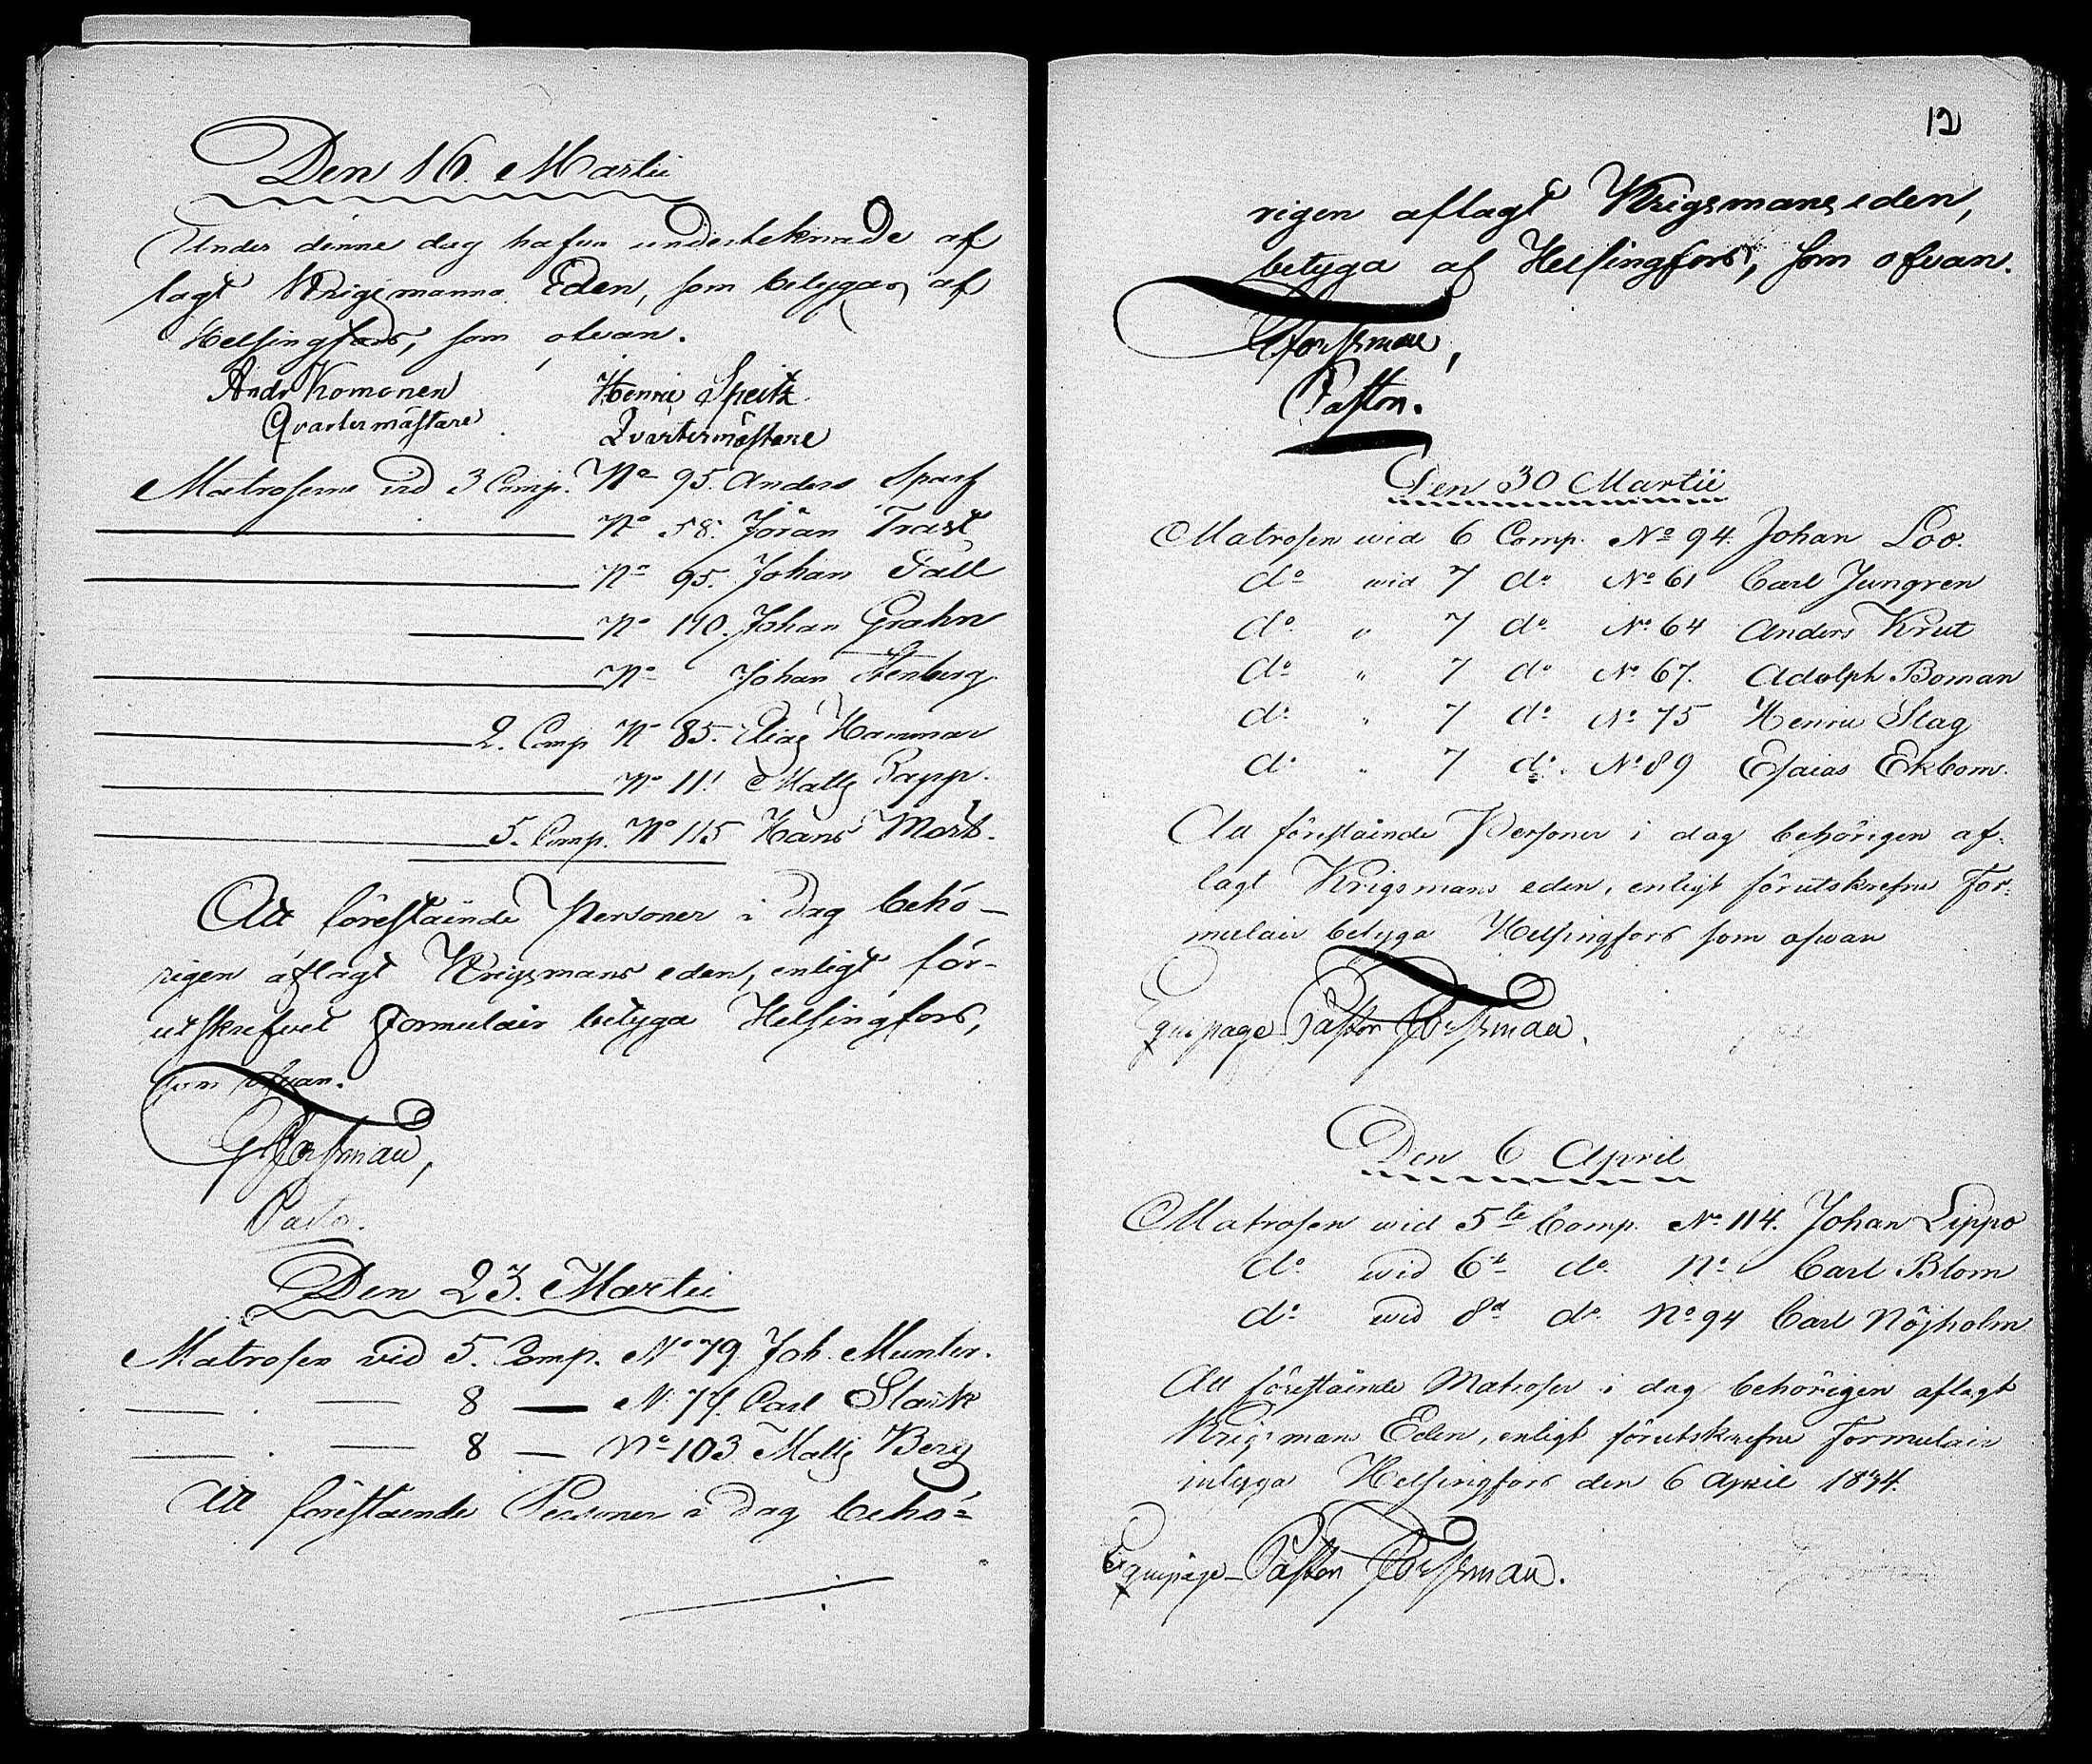 Den 16. Martii
Under denne dag hafva underteknade af-
lagt Krigsmanna Eden, som betygas af
Helsingfors, som ofvan.
Andr Komonen Henric Speitz
Qvartermästare Qvartermästare
Matroserne vid 3 Comp. No 95. Anders Sparf
No 58. Jöran Trast
No 95. Johan Fall
No 110. Johan Grahn
No Johan Stenberg
2. Comp No 85. Elias Hammar
No 111 Matts Rapp.
5. Comp. No 115 Hans Mort.
Att förestående Personer i dag behö-
rigen aflagt Krigsmans eden, enligt för-
utskrefvet Formulair betyga Helsingfors,
som ofvan.
G Forssman,
Pastor.
Den 23. Martii
Matrosen vid 5. Comp. No 79. Joh. Munter.
8 — No 74. Carl Slank
8 — No 103 Matts Berg
Att förestående Personer i dag behö-
12
rigen aflagt Krigsmans eden,
betyga af Helsingfors, som ofvan.
G Forssman,
Pastor.
Den 30 Martii
Matrosen wid 6 Comp. No 94. Johan Loo.
do wid 7 do No 61 Carl Jungren
do " 7 do No 64 Anders Krut
do " 7 do No 67. Adolph Boman
do " 7 do No 75 Henric Stag
do " 7 do No 89 Esaias Ekbom.
Att förestående Personer i dag behörigen af-
lagt Krigsmans eden, enligt förutskrefne For-
mulair betyga Helsingfors som ofwan
Equipage-Pastor Forssman.
Den 6 April
Matrosen wid 5te Comp. No 114. Johan Lippo
do wid 6te do No Carl Blom
do wid 8d do No 94 Carl Nöjholm
Att förestående Matroser i dag behörigen aflagt
Krigsmans Eden, enligt förutskrefne Formulair
Helsingfors den 6 April 1834.
Equipage-Pastor Forssman.